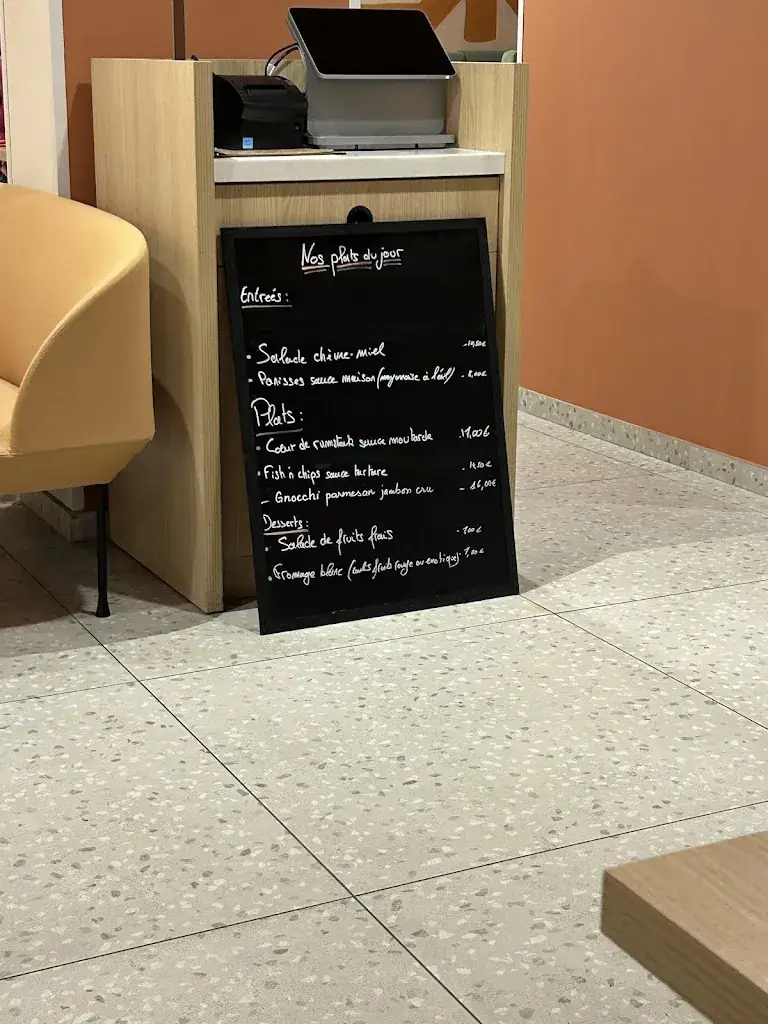 Nos plats du jour
Entrées :
• Salade chèvre-miel
• Panisses sauce maison (mayonaise à l'ail) - 8,00€
Plats :
• Cœur de rumsteak sauce moutarde 17,00€
• Fish n chips sauce tartare - 14,50€
- Gnocchi parmesan jambon cru - 16,00€
Desserts :
• Salade de fruits frais - 7,00€
• Fromage blanc (coulis fruits rouge ou exotique) - 7,00€